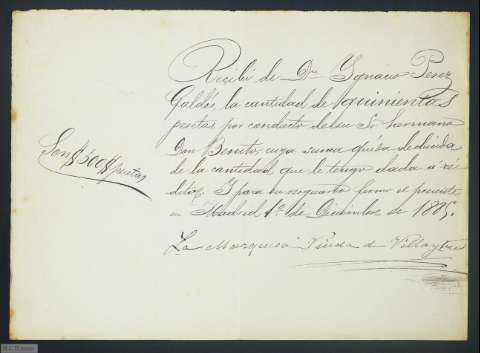 Recibí de Dn Ygnacio Perez
Galdós, la cantidad de quinientas
pesetas por conducto de su Sr hermano
Don Benito; cuya suma queda deducida
de la cantidad que le tengo dada á ré-
dito. Y para su resguardo firmo el presente
en Madrid 1º de Diciembre de 1885.
La Marquesa Viuda de
Son $500$ pesetas